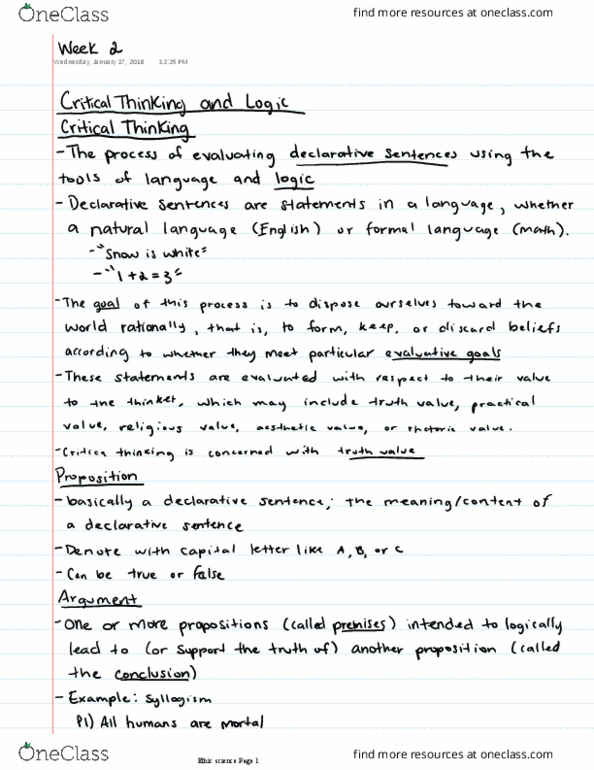 OneClass find more resources at oneclass.com
Week 2
Wednesday, January 17, 2018 12:25 PM
Critical Thinking and Logic
Critical Thinking
- The process of evaluating declarative sentences using the
tools of language and logic
- Declarative sentences are statements in a language, whether
a natural language (English) or formal language (math).
- "Snow is white"
- "1+2=3"
- The goal of this process is to dispose ourselves toward the
world rationally, that is, to form, keep, or discard beliefs
according to whether they meet particular evaluative goals
- These statements are evaluated with respect to their value
to the thinker, which may include truth value, practical
value, religious value, aesthetic value, or rhetoric value.
- Critical thinking is concerned with truth value
Proposition
- basically a declarative sentence; the meaning/content of
a declarative sentence
- Denote with capital letter like A, B, or C
- Can be true or false
Argument
- One or more propositions (called premises) intended to logically
lead to (or support the truth of) another proposition (called
the conclusion)
- Example: Syllogism
P1) All humans are mortal
OneClass find more resources at oneclass.com
Ethic science Page 1